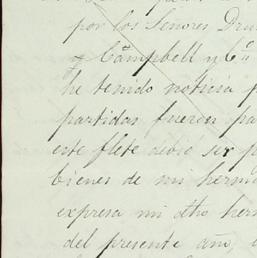 por los Señores Dru
y Campbell y Cª
he tenido noticia
partidas fueron pa
este flete debió ser p
bienes de mi herm
expresa mi dho her
del presente año,